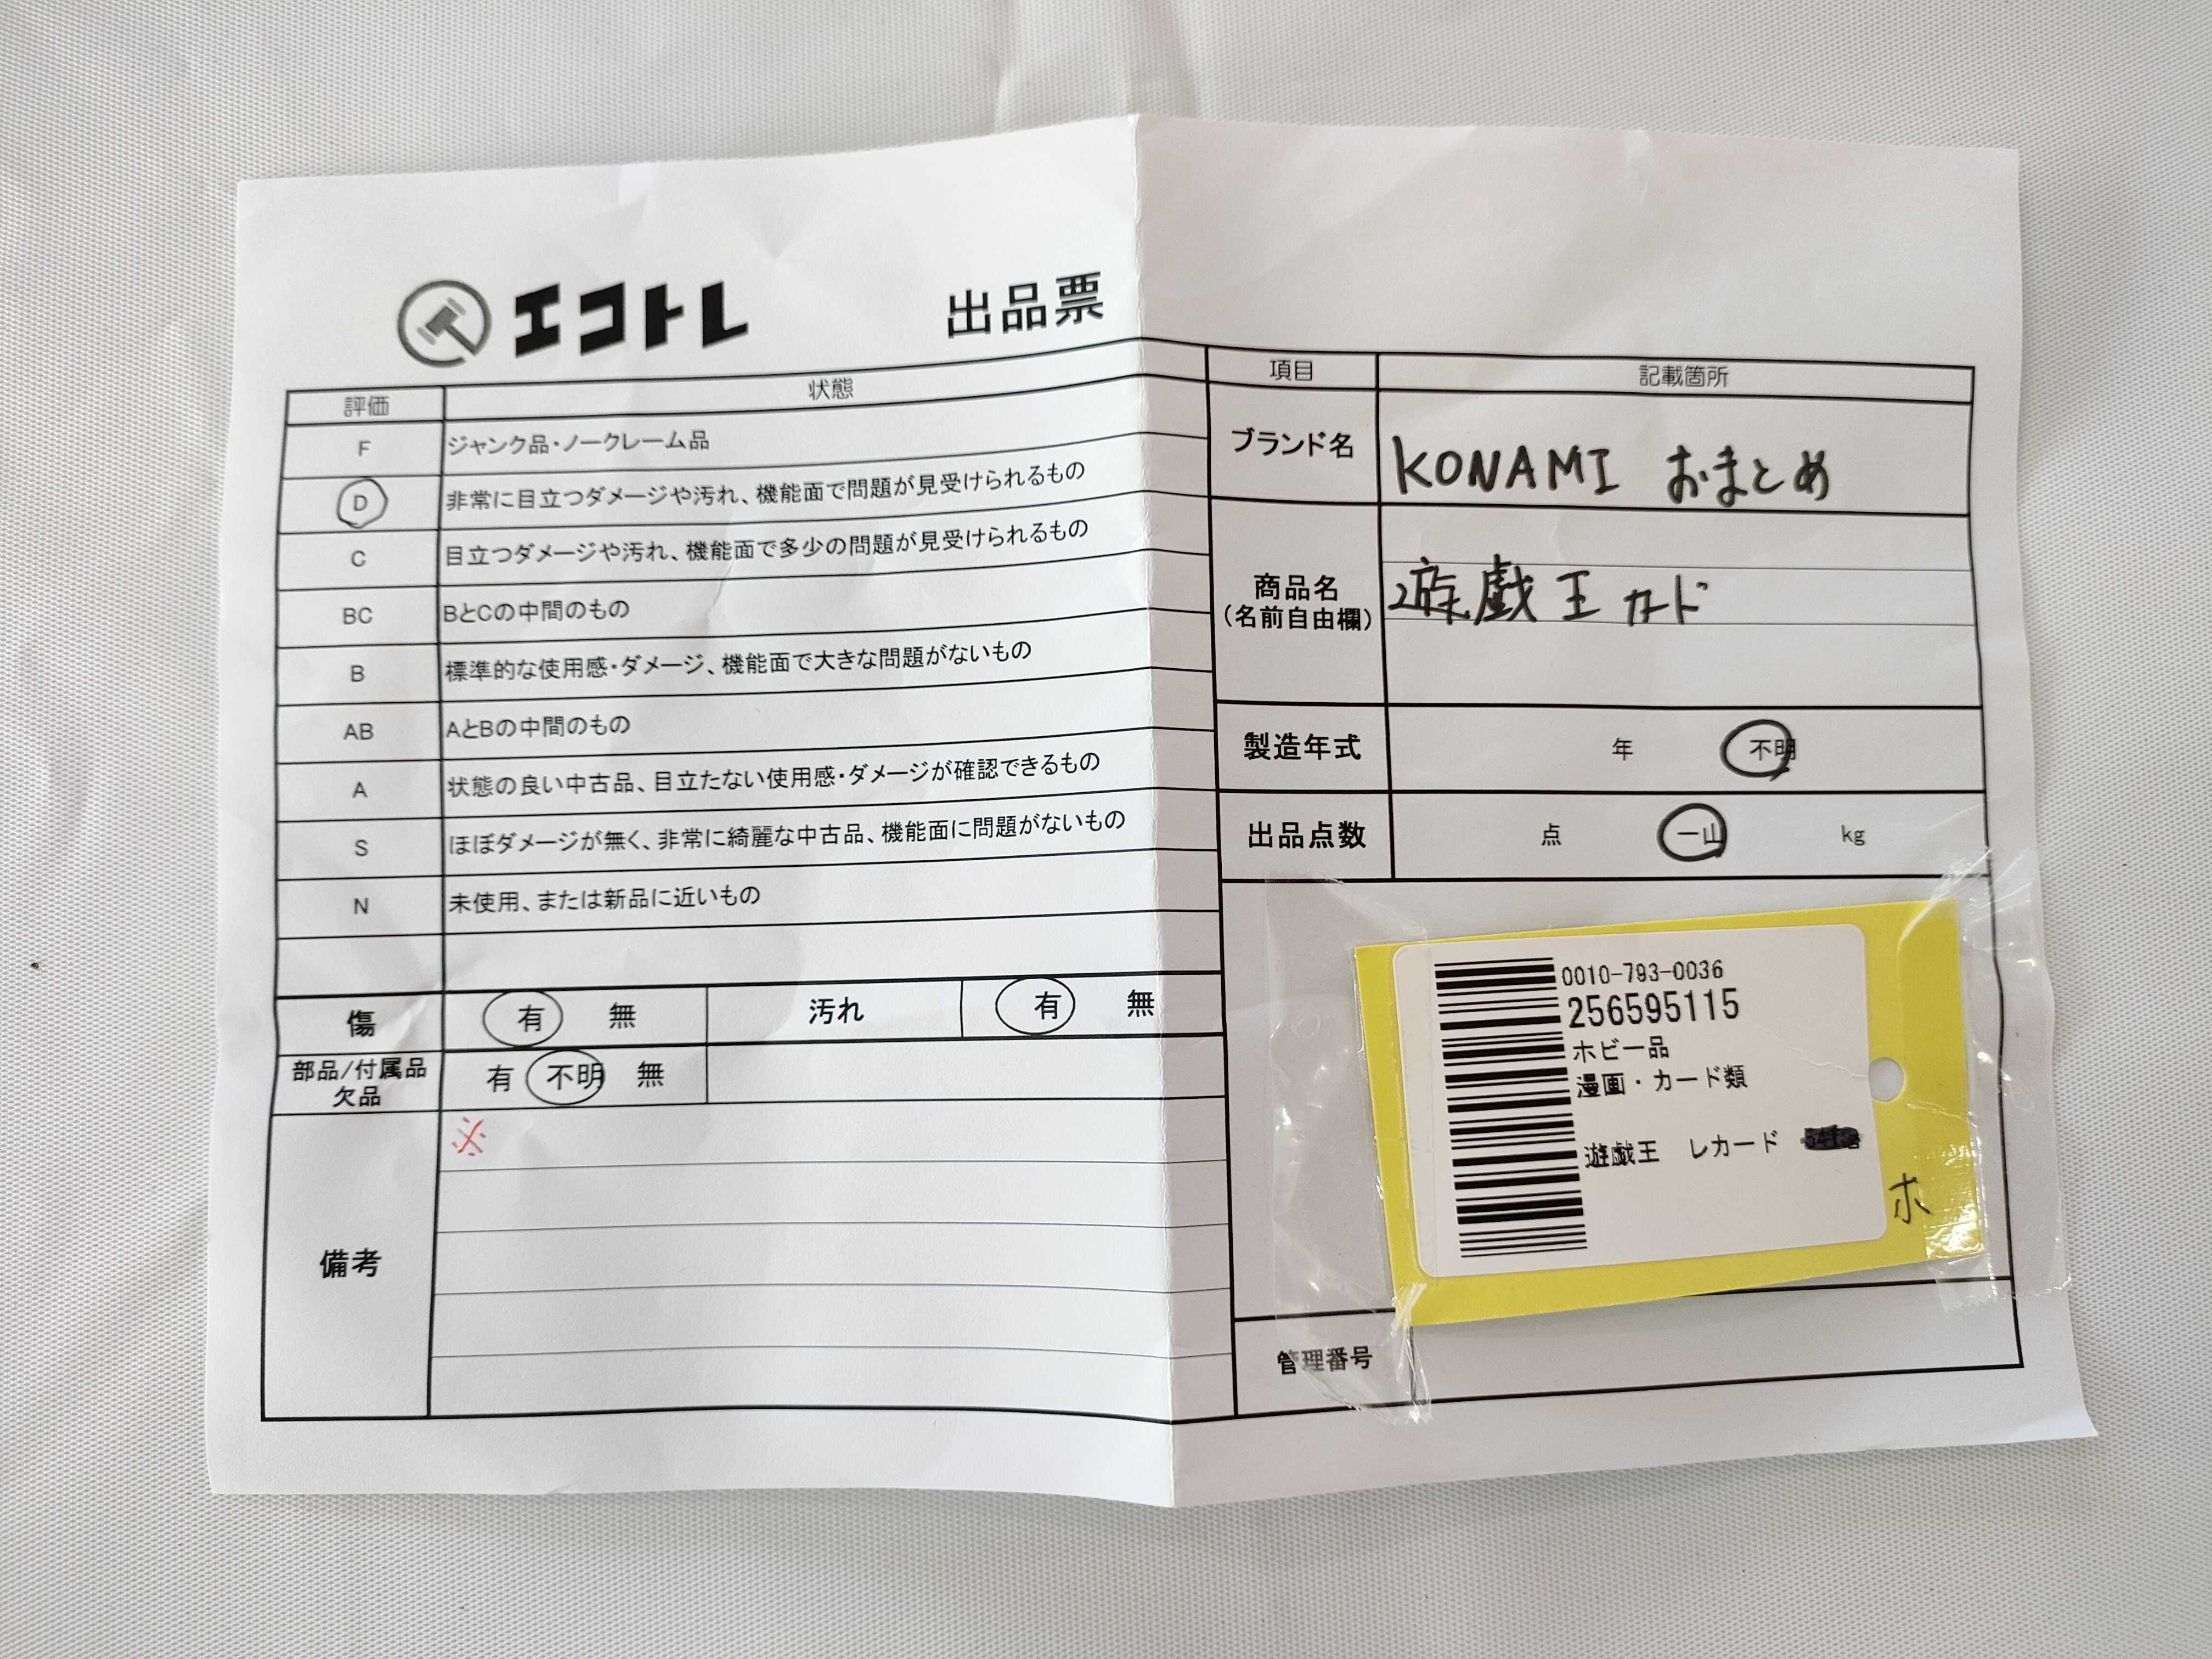 エコトレ 出品票
評価 状態
F ジャンク品・ノークレーム品
D 非常に目立つダメージや汚れ、機能面で問題が見受けられるもの
C 目立つダメージや汚れ、機能面で多少の問題が見受けられるもの
BC BとCの中間のもの
B 標準的な使用感・ダメージ、機能面で大きな問題がないもの
AB AとBの中間のもの
A 状態の良い中古品、目立たない使用感・ダメージが確認できるもの
S ほぼダメージが無く、非常に綺麗な中古品、機能面に問題がないもの
N 未使用、または新品に近いもの
傷 有 無 汚れ 有 無
部品/付属品
欠品
有 不明 無
備考
※
項目 記載箇所
ブランド名 KONAMI おまとめ
商品名
(名前自由欄)
遊戯王カード
製造年式 年 不明
出品点数 点 一山 kg
0010-793-0036
256595115
ホビー品
漫画・カード類
遊戯王 レカード
ホ
管理番号